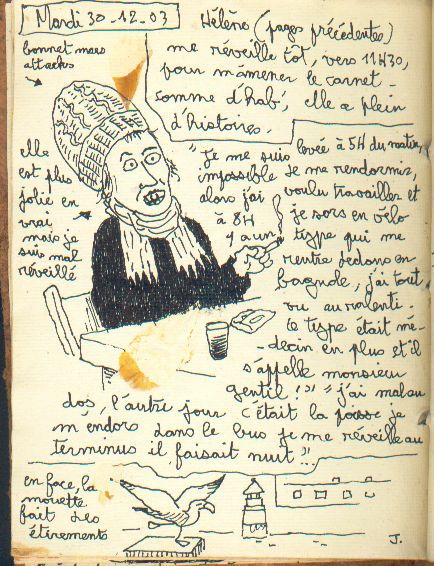 Mardi 30-12-03
Hélène (pages précédentes)
me réveille tôt, vers 11H30,
pour m'amener le carnet.
comme d'hab', elle a plein
d'histoires.
bonnet mars
attacks
elle
est plus
jolie en
vrai
mais je
suis mal
réveillé
"Je me suis levée à 5H du matin,
impossible de me rendormir,
alors j'ai voulu travailler et
à 8H je sors en vélo
y a un type qui me
rentre dedans en
bagnole, j'ai tout
vu au ralenti.
le type était mé-
decin en plus et il
s'appelle monsieur
gentil!?" "j'ai mal au
dos, l'autre jour c'était la poisse je
m'endors dans le bus je me réveille au
terminus il faisait nuit!"
en face, la
mouette
fait des
étirements
J.